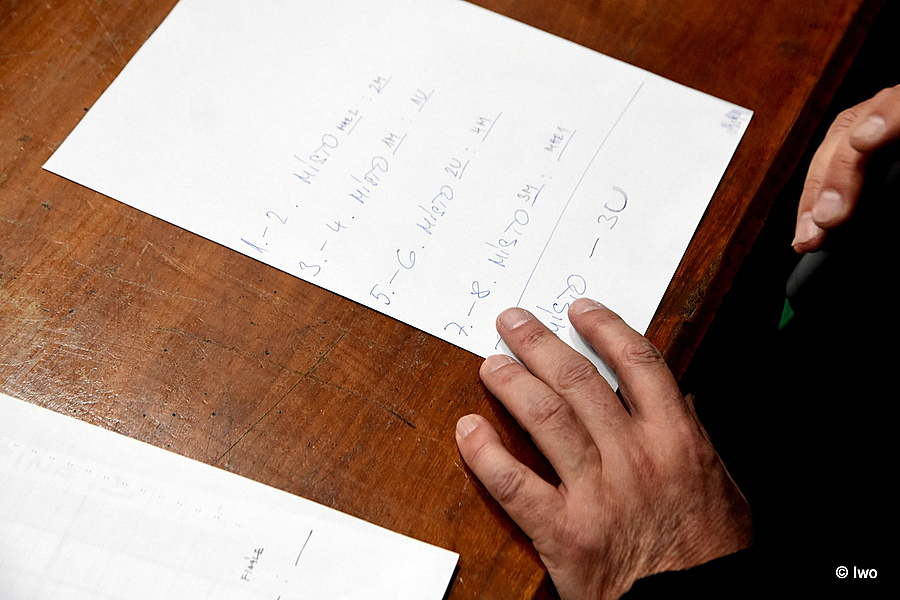 1.-2. MÍSTO MEZ2 : 2M
3.-4. MÍSTO 1M : 1U
5.-6. MÍSTO 2U : 4M
7.-8. MÍSTO 3M : MEZ1
MÍSTO - 3U
FINÁLE
© Iwo